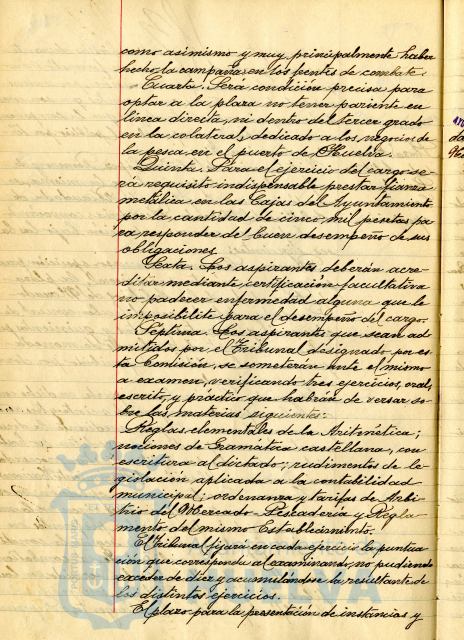 como asimismo y muy principalmente haber
hecho la campaña en los frentes de combate.
Cuarta. Será condición precisa para
optar a la plaza no tener pariente en
línea directa, ni dentro del tercer grado
en la colateral, dedicado a los negocios de
la pesca en el puerto de Huelva.
Quinta. Para el ejercicio del cargo se-
rá requisito indispensable prestar fianza
metálica en las Cajas del Ayuntamiento
por la cantidad de cinco mil pesetas pa-
ra responder del buen desempeño de sus
obligaciones.
Sexta. Los aspirantes deberán acre-
ditar mediante certificación facultativa
no padecer enfermedad alguna que le
imposibilite para el desempeño del cargo.
Septima. Los aspirantes que sean ad-
mitidos por el Tribunal designado por es-
ta Comisión, se someterán ante el mismo
a examen, verificando tres ejercicios, oral,
escrito, y práctico que habrán de versar so-
bre las materias siguientes:
Reglas elementales de la Aritmética;
nociones de Gramática castellana, con
escritura al dictado; rudimentos de le-
gislación aplicada a la contabilidad
municipal; ordenanza y tarifas de Arbi-
trio del Mercado-Pescadería y Regla-
mento del mismo Establecimiento.
El Tribunal fijará en cada ejercicio la puntua-
ción que corresponda al examinando, no pudiendo
exceder de diez y acumulándose la resultante de
los distintos ejercicios.
El plazo para la presentación de instancias y